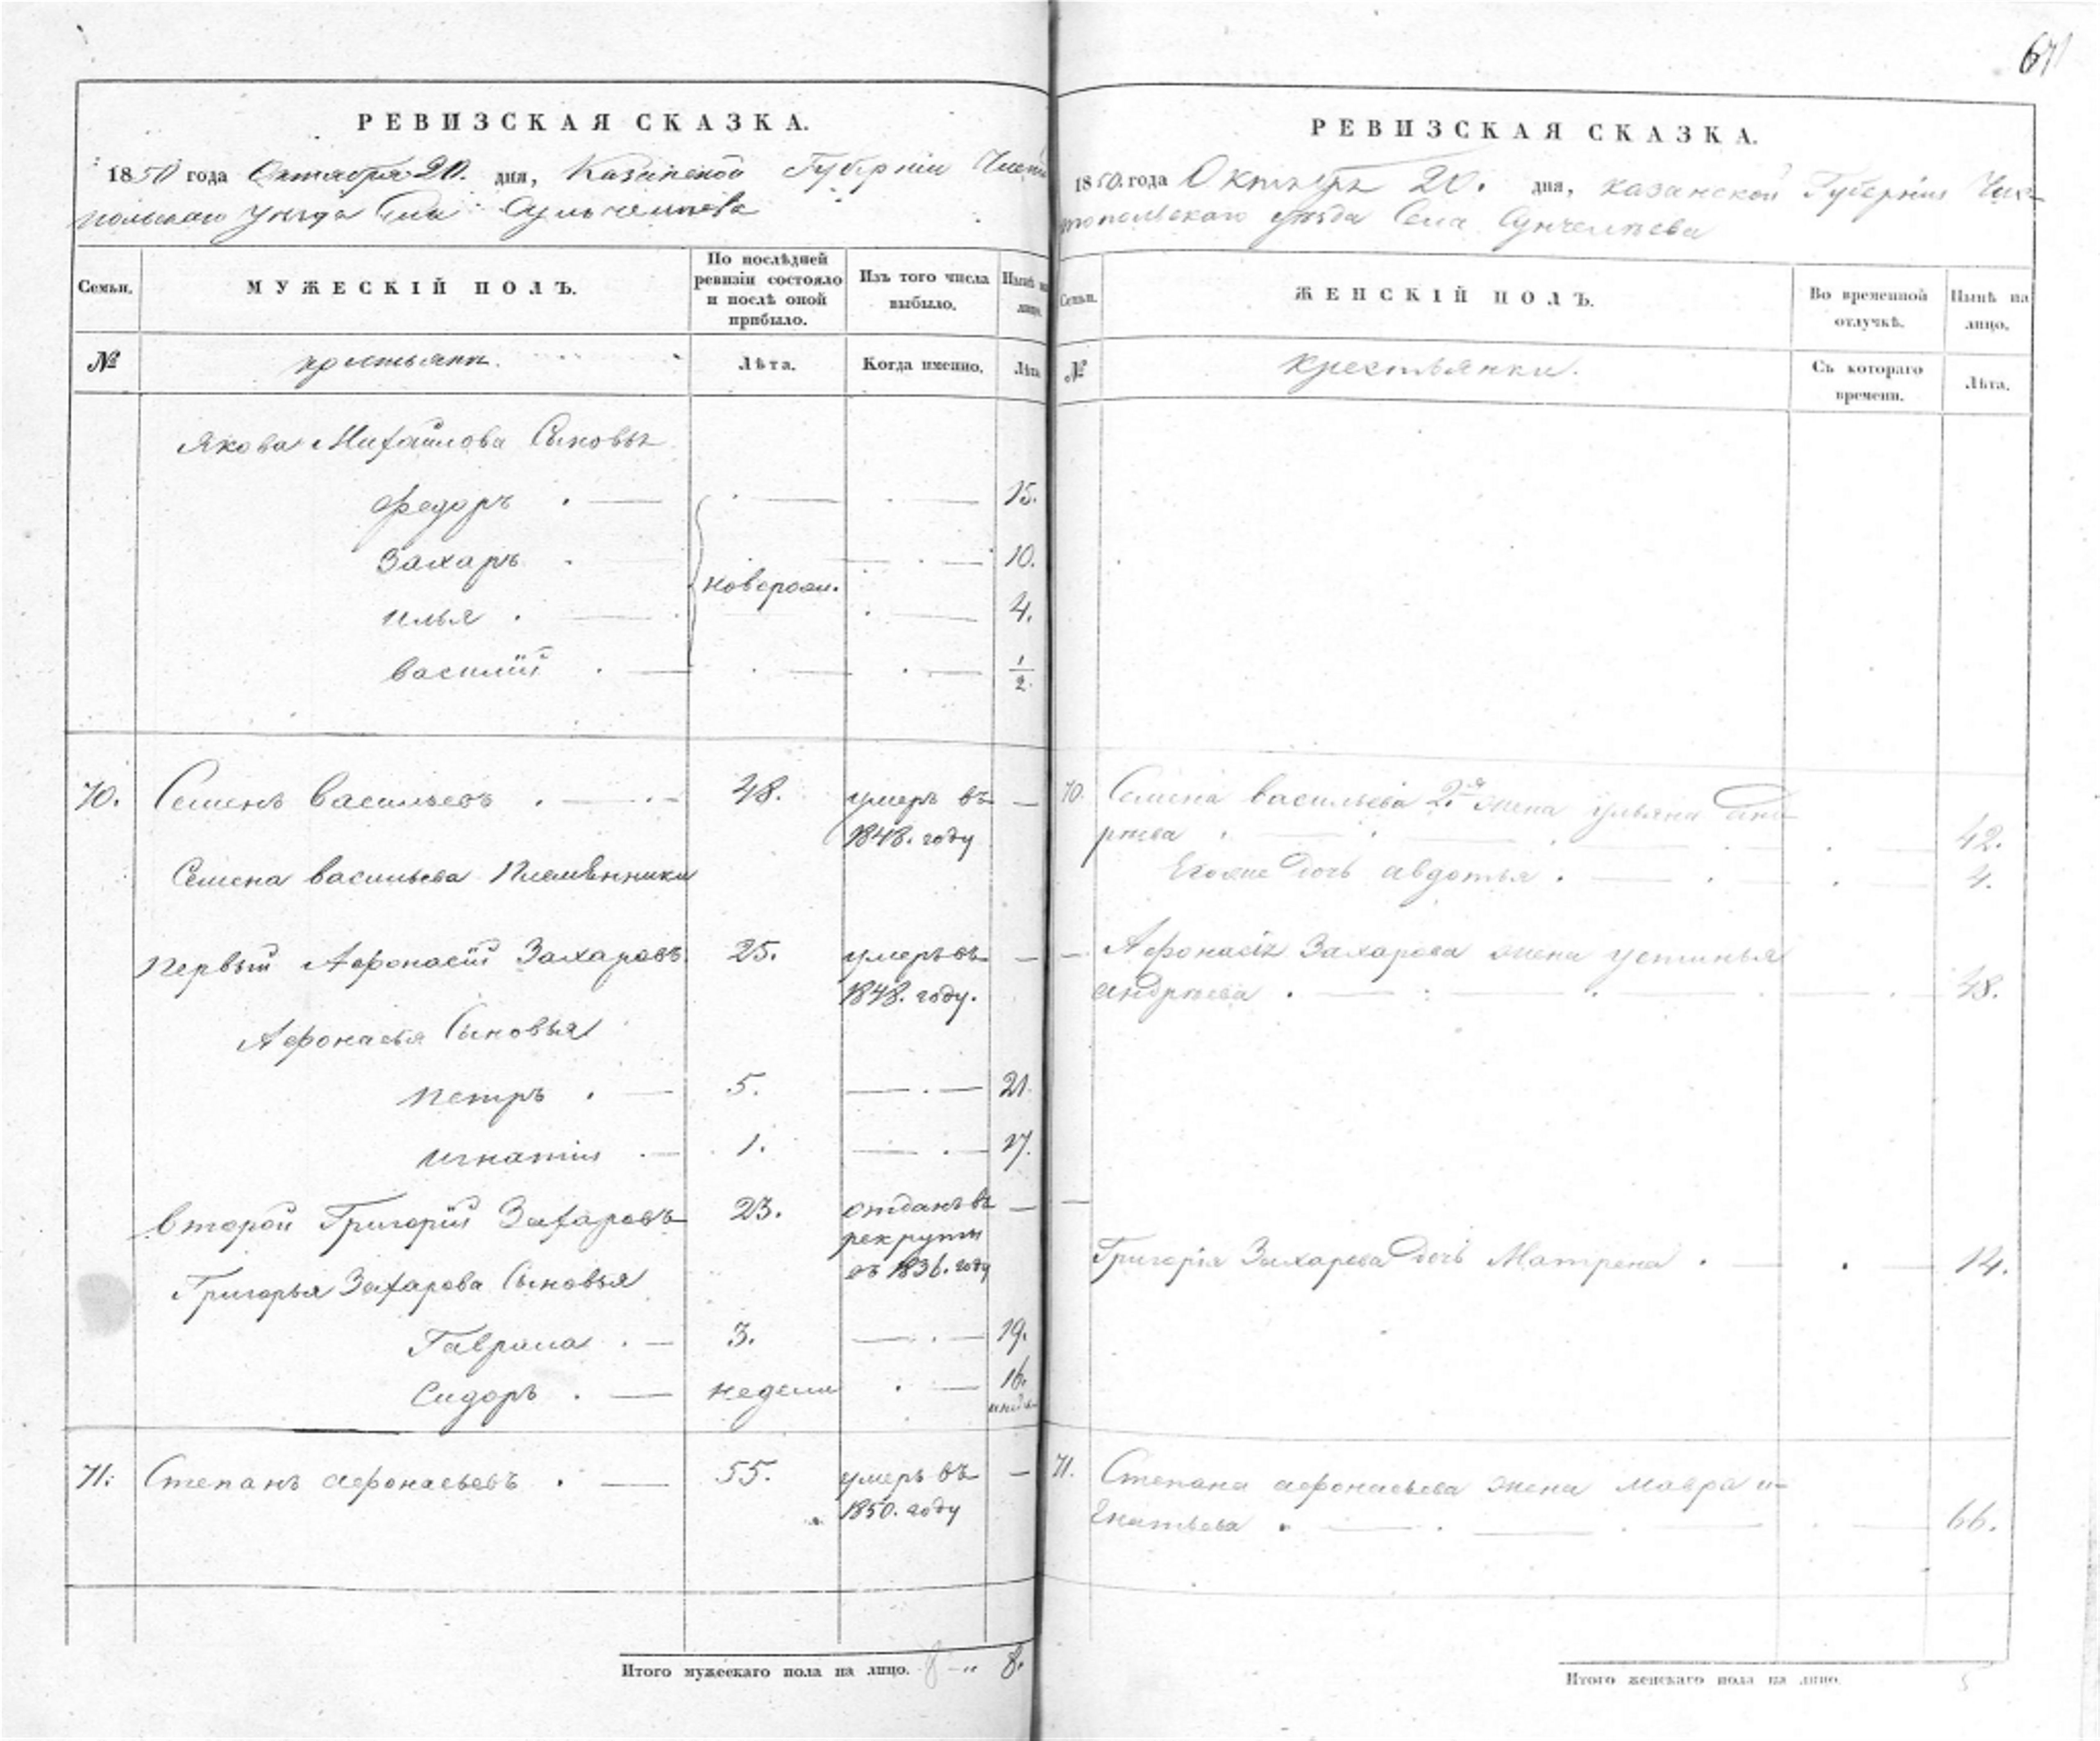 67
РЕВИЗСКАЯ СКАЗКА.
1850 года Октября 20. дня, Казанской Губерніи Чисто
польскаго уѣзда Села Сунчелѣева
Семьи.
МУЖЕСКІЙ ПОЛЪ.
По послѣдней
ревизіи состояло
и послѣ оной
прибыло.
Изъ того числа
выбыло.
Нынѣ на
лицо.
№
крестьяне.
Лѣта.
Когда именно.
Лѣта
Якова Михайлова Сыновья
Федоръ . — . — . — 15.
Захаръ . — . — 10.
новорож.
Илья . — . — 4.
Василій . — . — . — 1/2.
70. Семенъ Васильевъ . — 48. умеръ въ —
1848. году
Семена Васильева Племянники
Первый Афонасій Захаровъ 25. умеръ въ —
1848. году.
Афонасья Сыновья
Петръ . — 5. — . — 21.
Игнатій . — 1. — . — 17.
Второй Григорій Захаровъ 23. отданъ въ —
рекруты
въ 1836. году
Григорья Захарова Сыновья
Гаврила . — 3. — . — 19.
Сидоръ . — недели . — 16.
71. Степанъ Афонасьевъ . — 55. умеръ въ —
1850. году
Итого мужескаго пола на лицо. 8 8.
РЕВИЗСКАЯ СКАЗКА.
1850. года Октября 20. дня, Казанской Губерніи Чис-
топольскаго уѣзда Села Сунчелѣева
Семьи.
ЖЕНСКІЙ ПОЛЪ.
Во временной
отлучкѣ.
Нынѣ на
лицо.
№
Крестьянки.
Съ котораго
времени.
Лѣта.
70. Семена Васильева 2я жена Ульяна
42.
Егоже дочь Авдотья . — . — 4.
— Афонасія Захарова жена Устинья
Андреева . — . — 48.
—
Григорія Захарова дочь Матрена . — . — 14.
71. Степана Афонасьева жена Мавра И-
гнатьева . — . — 66.
Итого женскаго пола на лицо. 5